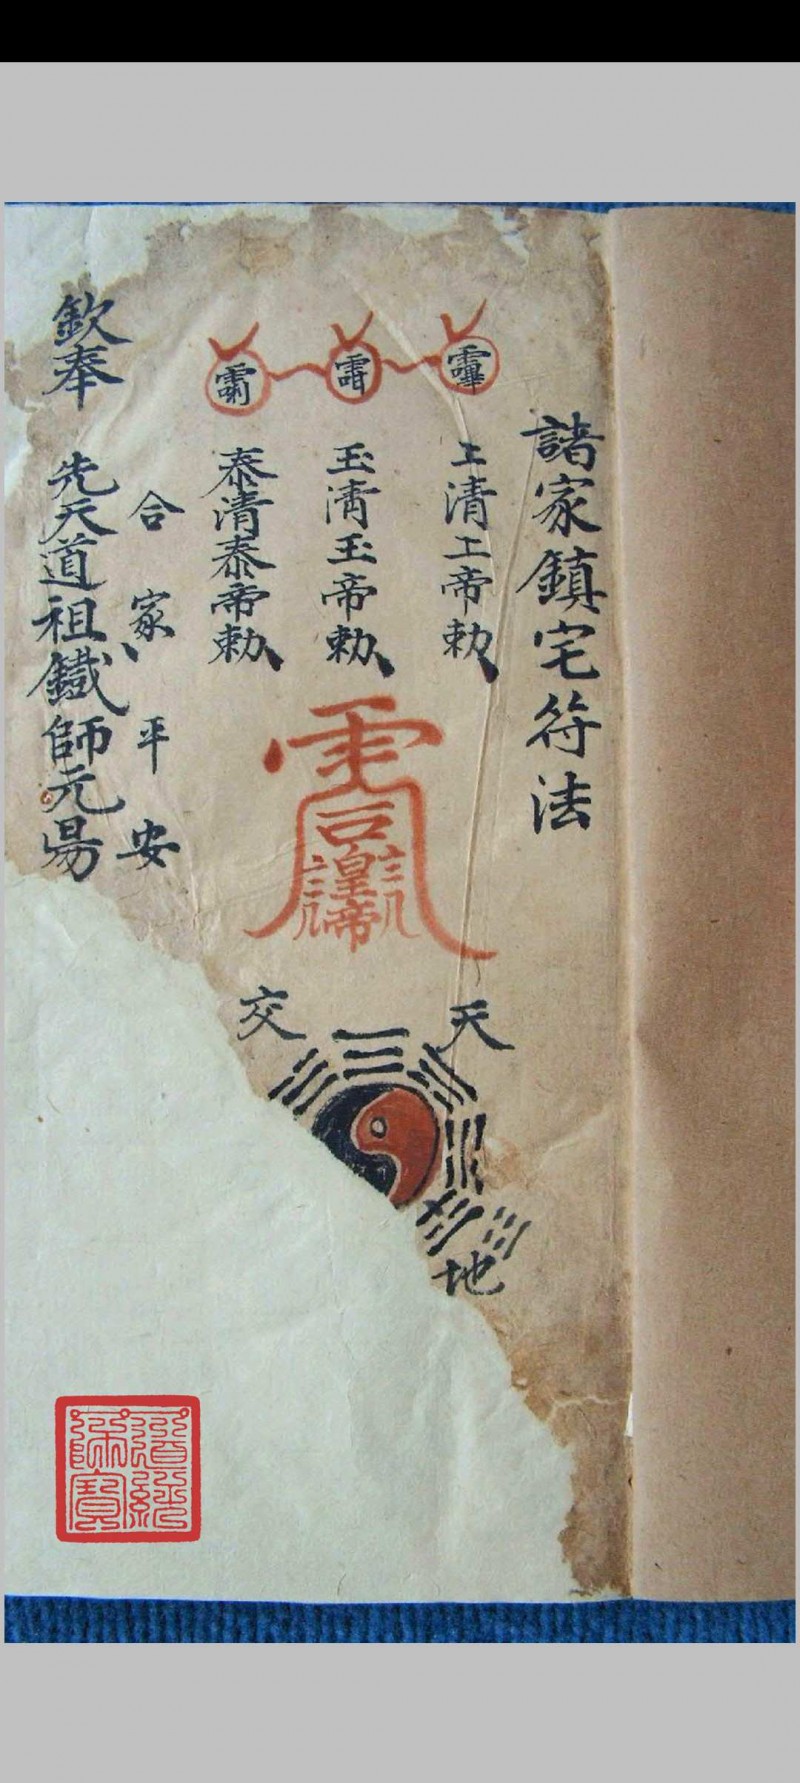 諸家鎮宅符法
上清上帝勅
玉清玉帝勅
泰清泰帝勅
皇帝
合家平安
欽奉 先天道祖鐵師元
天
交
地
道經師寶